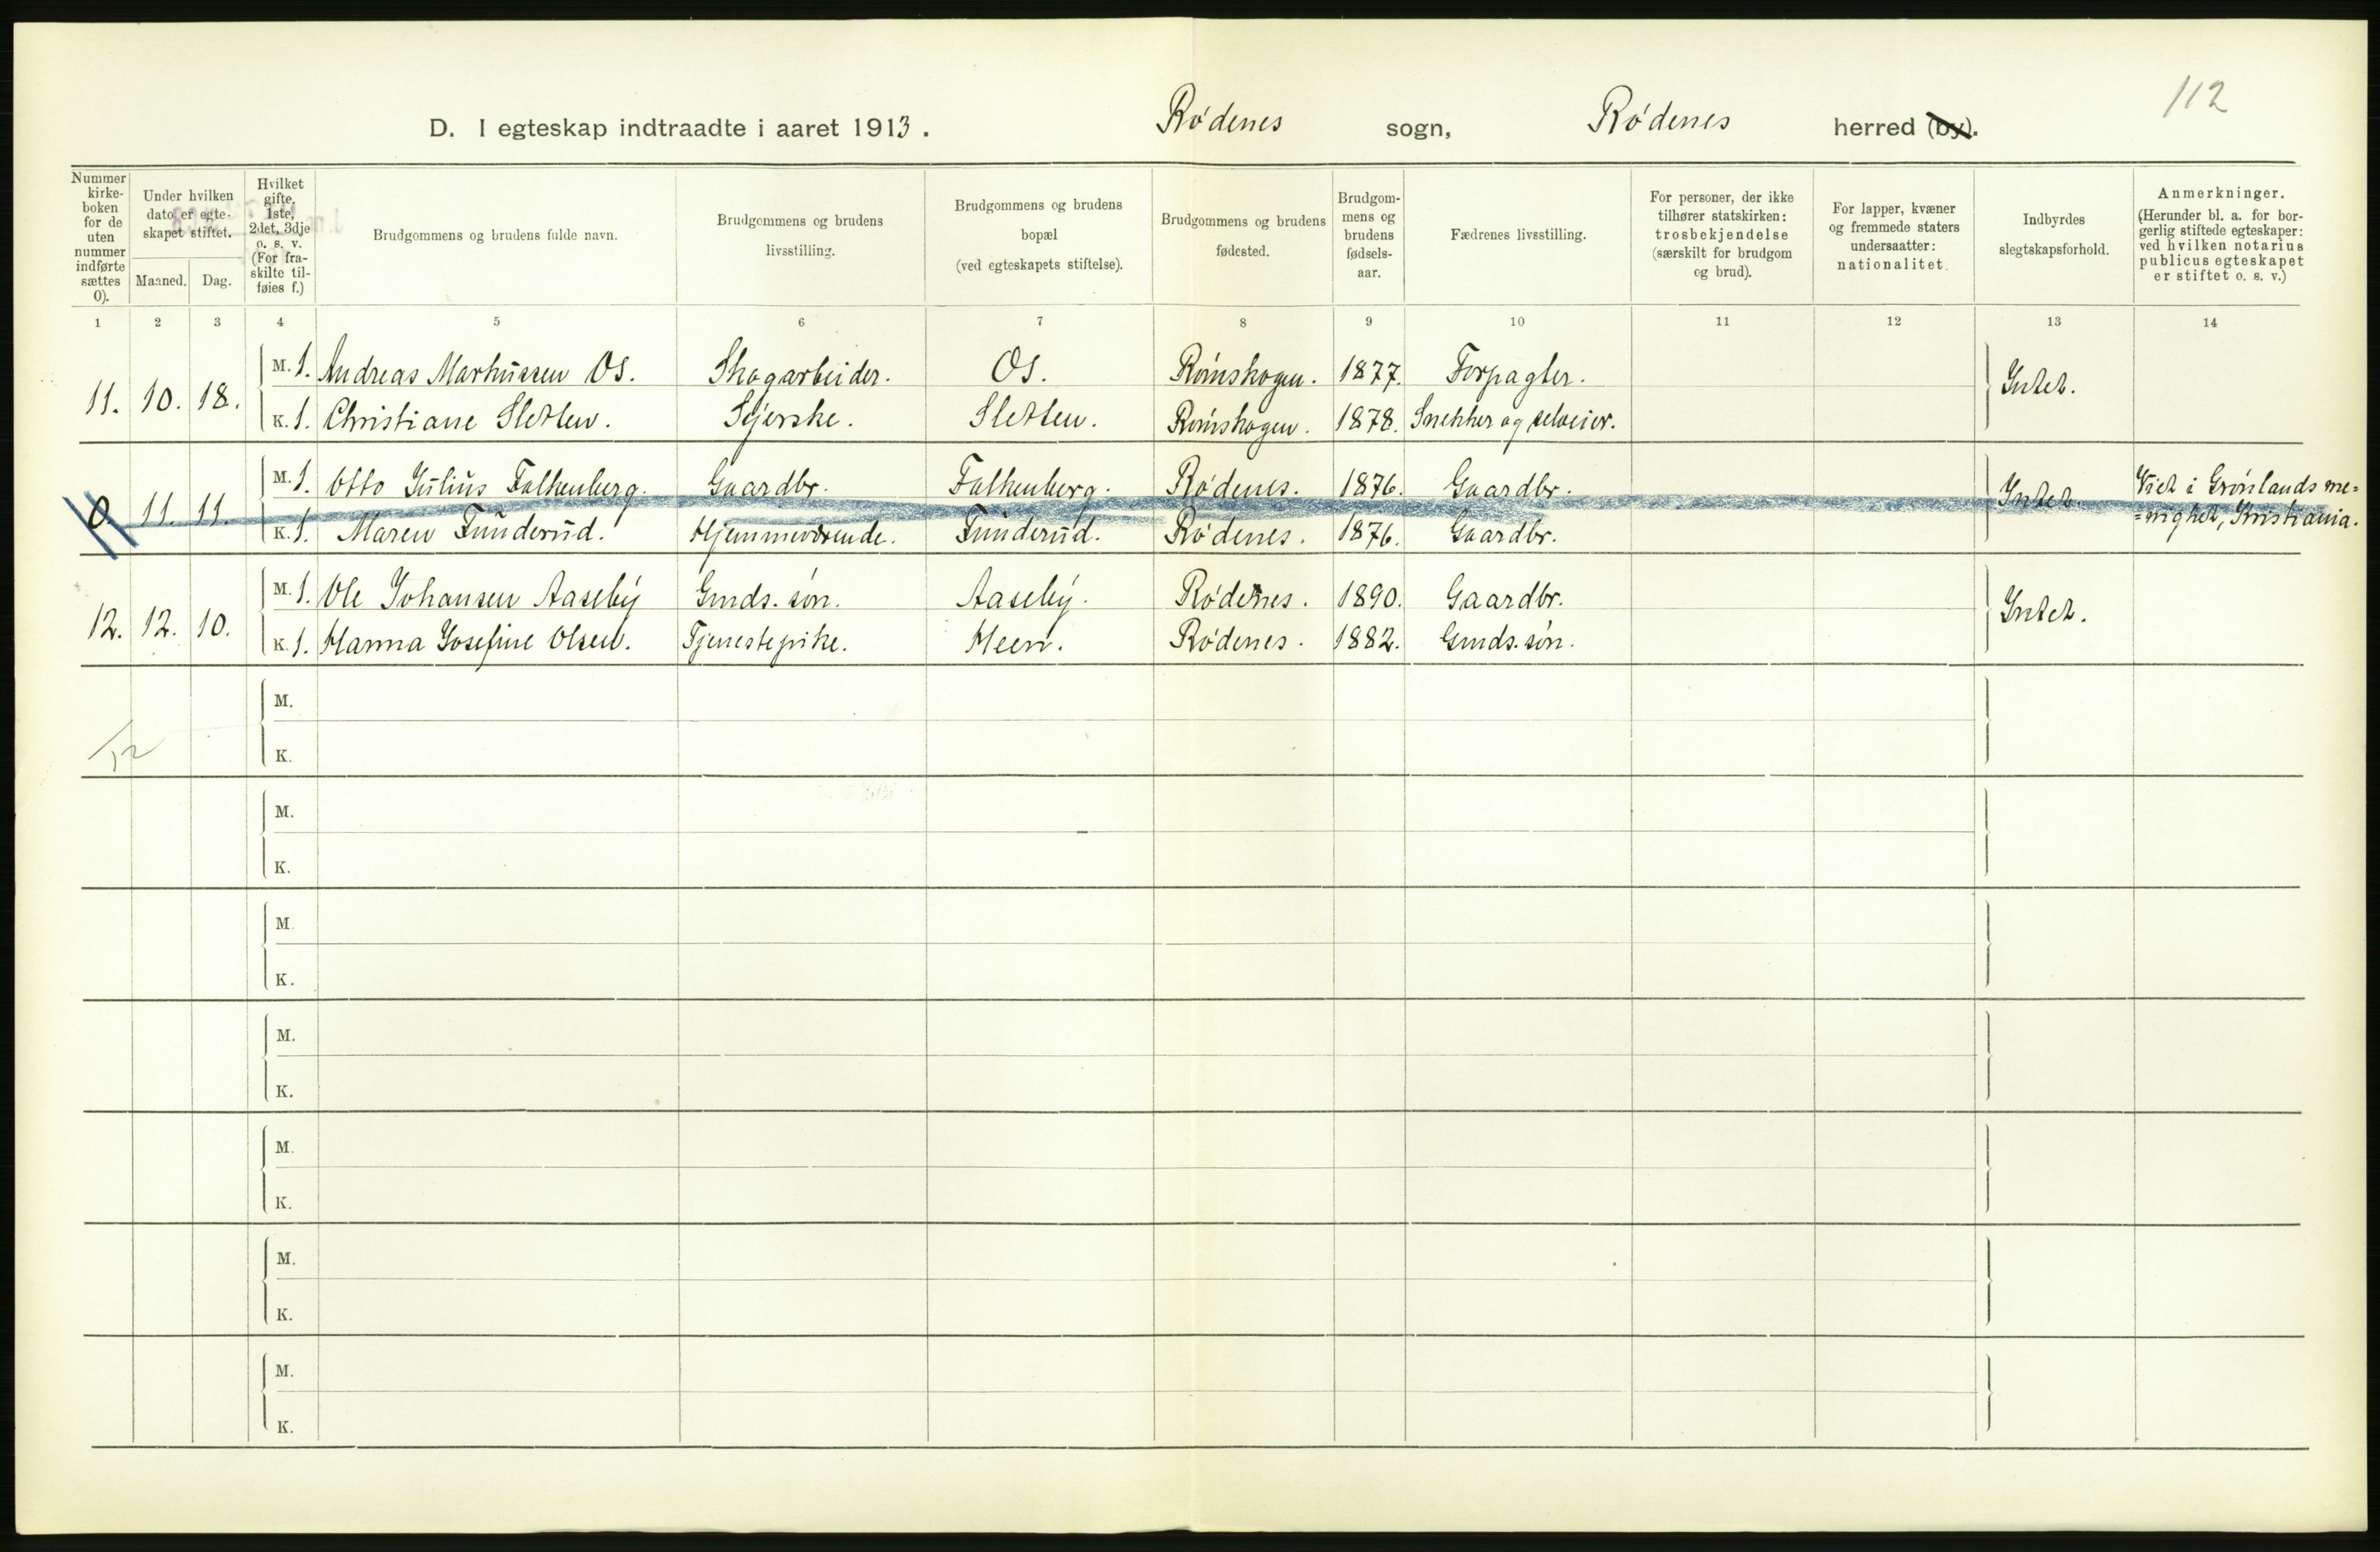 112
D. I egteskap indtraadte i aaret 1913. Rødenes sogn, Rødenes herred (by).
Nummer kirke-boken for de uten nummer indførte sættes 0).
Under hvilken dato er egte-skapet stiftet.
Maaned. Dag.
Hvilket gifte. 1ste, 2det, 3dje o. s. v. (For fra-skilte til-føies f.)
Brudgommens og brudens fulde navn.
Brudgommens og brudens livsstilling.
Brudgommens og brudens bopæl (ved egteskapets stiftelse).
Brudgommens og brudens fødested.
Brudgom-mens og brudens fødsels-aar.
Fædrenes livsstilling.
For personer, der ikke tilhører statskirken: trosbekjendelse (særskilt for brudgom og brud).
For lapper, kvæner og fremmede staters undersaatter: nationalitet.
Indbyrdes slegtskapsforhold.
Anmerkninger. (Herunder bl. a. for bor-gerlig stiftede egteskaper: ved hvilken notarius publicus egteskapet er stiftet o. s. v.)
1 2 3 4 5 6 7 8 9 10 11 12 13 14
11. 10. 18. M. 1. Andreas Markussen Os. Skogarbeider. Os. Rømskogen. 1877. Forpagter. Intet.
K. 1. Christiane Sletten. Syerske. Sletten. Rømskogen. 1878. Snekker og selveier.
0 11. 11. M. 1. Otto Julius Falkenberg. Gaardbr. Falkenberg. Rødenes. 1876. Gaardbr. Intet. Viet i Grønlands me-
K. 1. Maren Funderud. Hjemmeværende. Funderud. Rødenes. 1876. Gaardbr. =nighet, Kristiania.
12. 12. 10. M. 1. Ole Johansen Aaseby Gmds. søn. Aaseby. Rødenes. 1890. Gaardbr. Intet.
K. 1. Hanna Josefine Olsen. Tjenestepike. Heen. Rødenes. 1882. Gmds. søn.
M.
12
K.
M.
K.
M.
K.
M.
K.
M.
K.
M.
K.
M.
K.